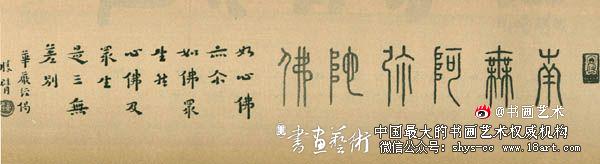 南無阿弥陀佛
如心佛
亦尔
如佛眾
生然
心佛及
眾生
是三無
差別
華嚴經偈
@书画艺术
書畫藝術
中国最大的书画艺术权威机构
微信公众号：shys-cc www.18art.com